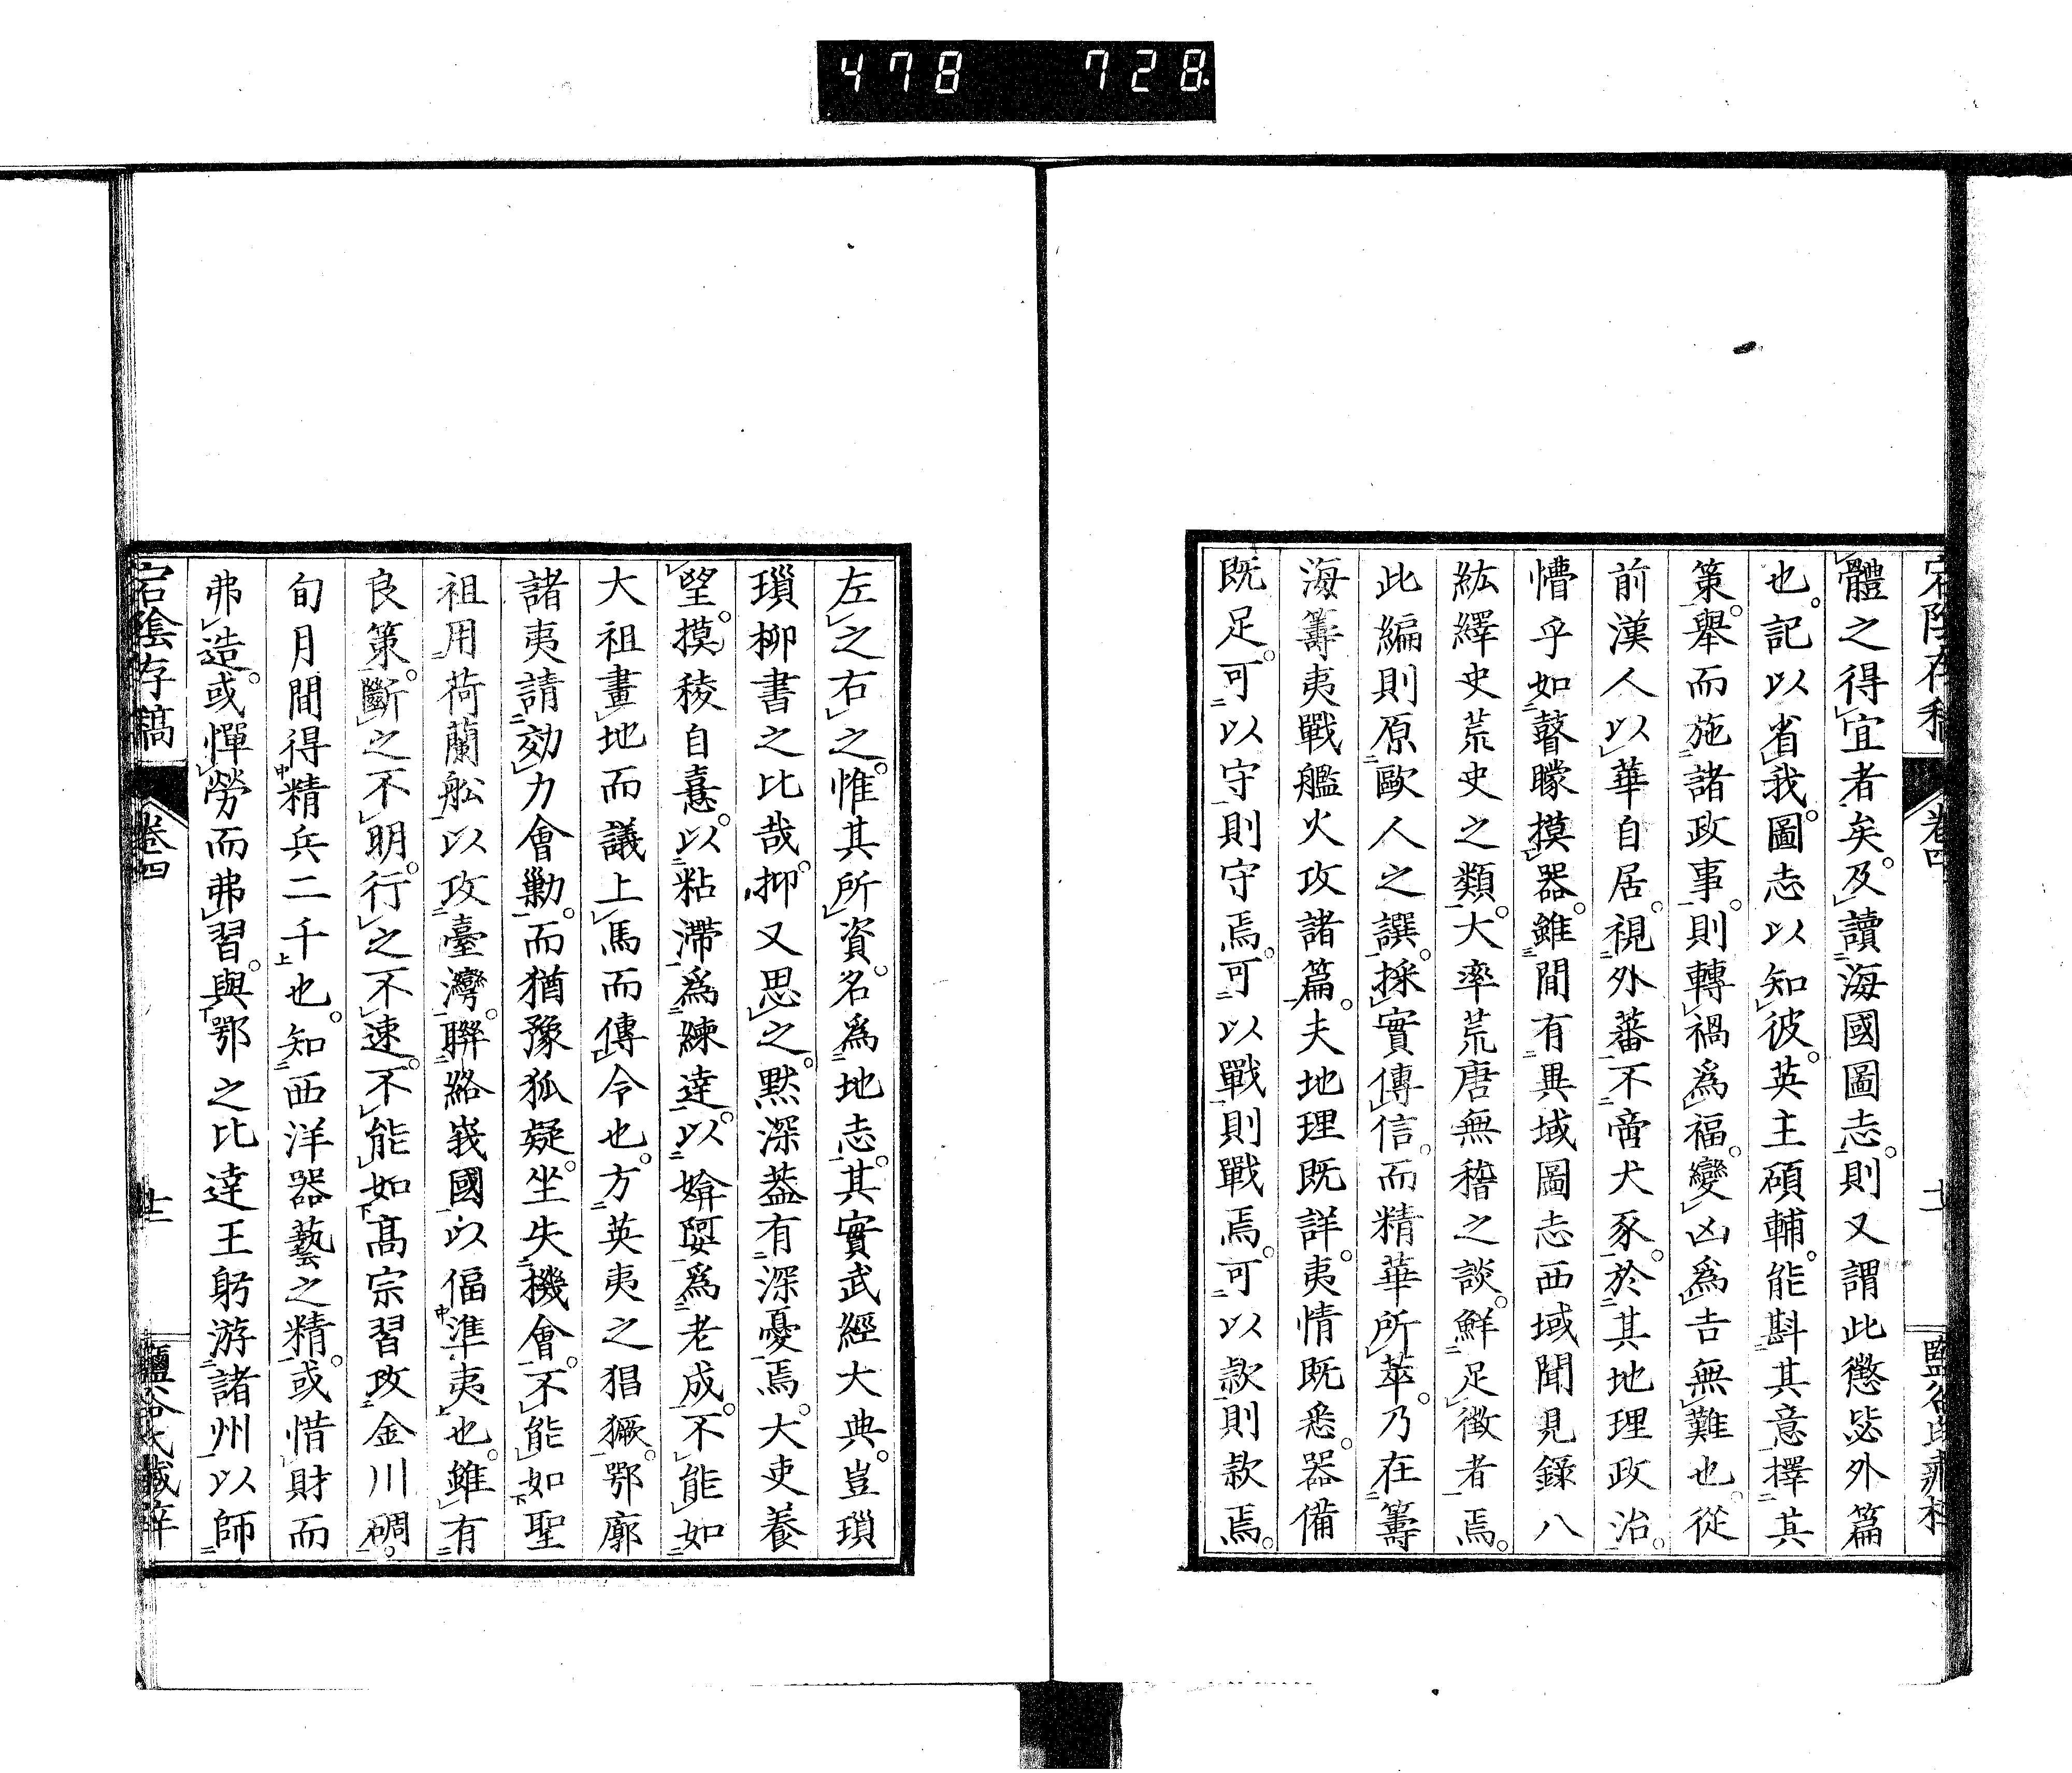 478 728
體之得宜者矣。及讀海國圖志。則又謂此懲毖外篇
也。記以省我。圖志以知彼。英主碩輔。能斟其意擇其
策。舉而施諸政事。則轉禍爲福。變凶爲吉無難也。從
前漢人以華自居。視外蕃不啻犬豕。於其地理政治。
懵乎如瞽矇摸器。雖間有異域圖志西域聞見錄八
紘繹史荒史之類。大率荒唐無稽之談。鮮足徵者焉。
此編則原歐人之譔。採實傳信。而精華所萃。乃在籌
海籌夷戰艦火攻諸篇。夫地理既詳。夷情既悉。器備
既足。可以守則守焉。可以戰則戰焉。可以款則款焉。
左之右之。惟其所資。名爲地志。其實武經大典。豈瑣
瑣柳書之比哉。抑又思之。默深蓋有深憂焉。大吏養
望。摸稜自憙。以粘滯爲練達。以媕婀爲老成。不能如
大祖畫地而議上馬而傳令也。方英夷之猖獗。鄂廓
諸夷請効力會勦。而猶豫狐疑。坐失機會。不能如聖
祖用荷蘭舩以攻臺灣。聯絡峩國以偪準夷也。雖有
良策。斷之不明。行之不速。不能如高宗習攻金川碉。
旬月間得精兵二千也。知西洋器藝之精。或惜財而
弗造。或憚勞而弗習。與鄂之比達王躬游諸州以師
宕陰存稿 卷四 十二